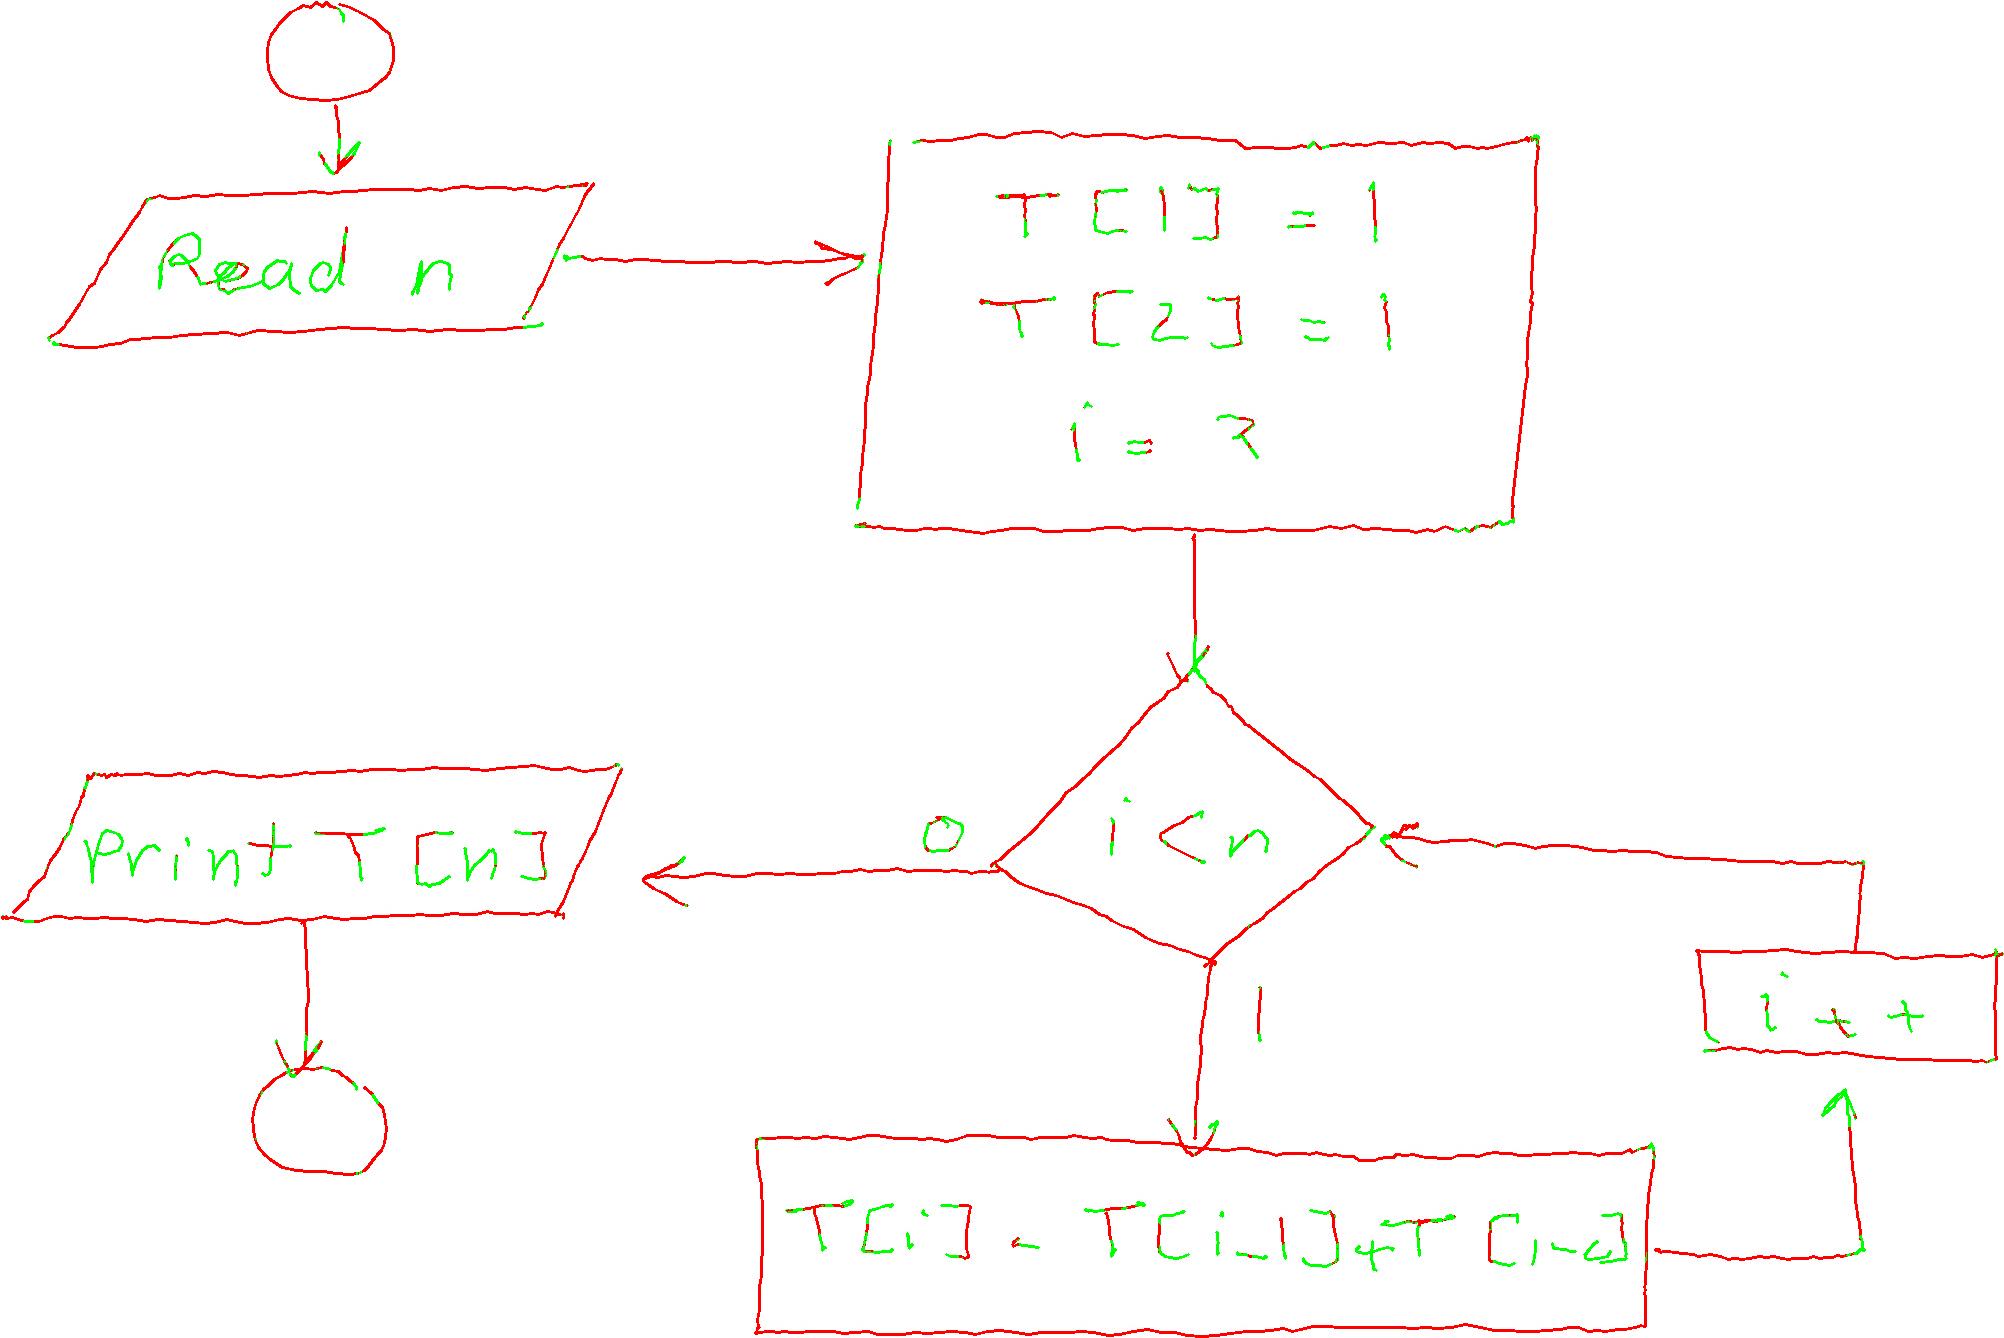 Read n
T [1] = 1
T [2] = 1
i = 3
i < n
0
1
Print T [n]
i + +
T[i] = T[i-1] + T